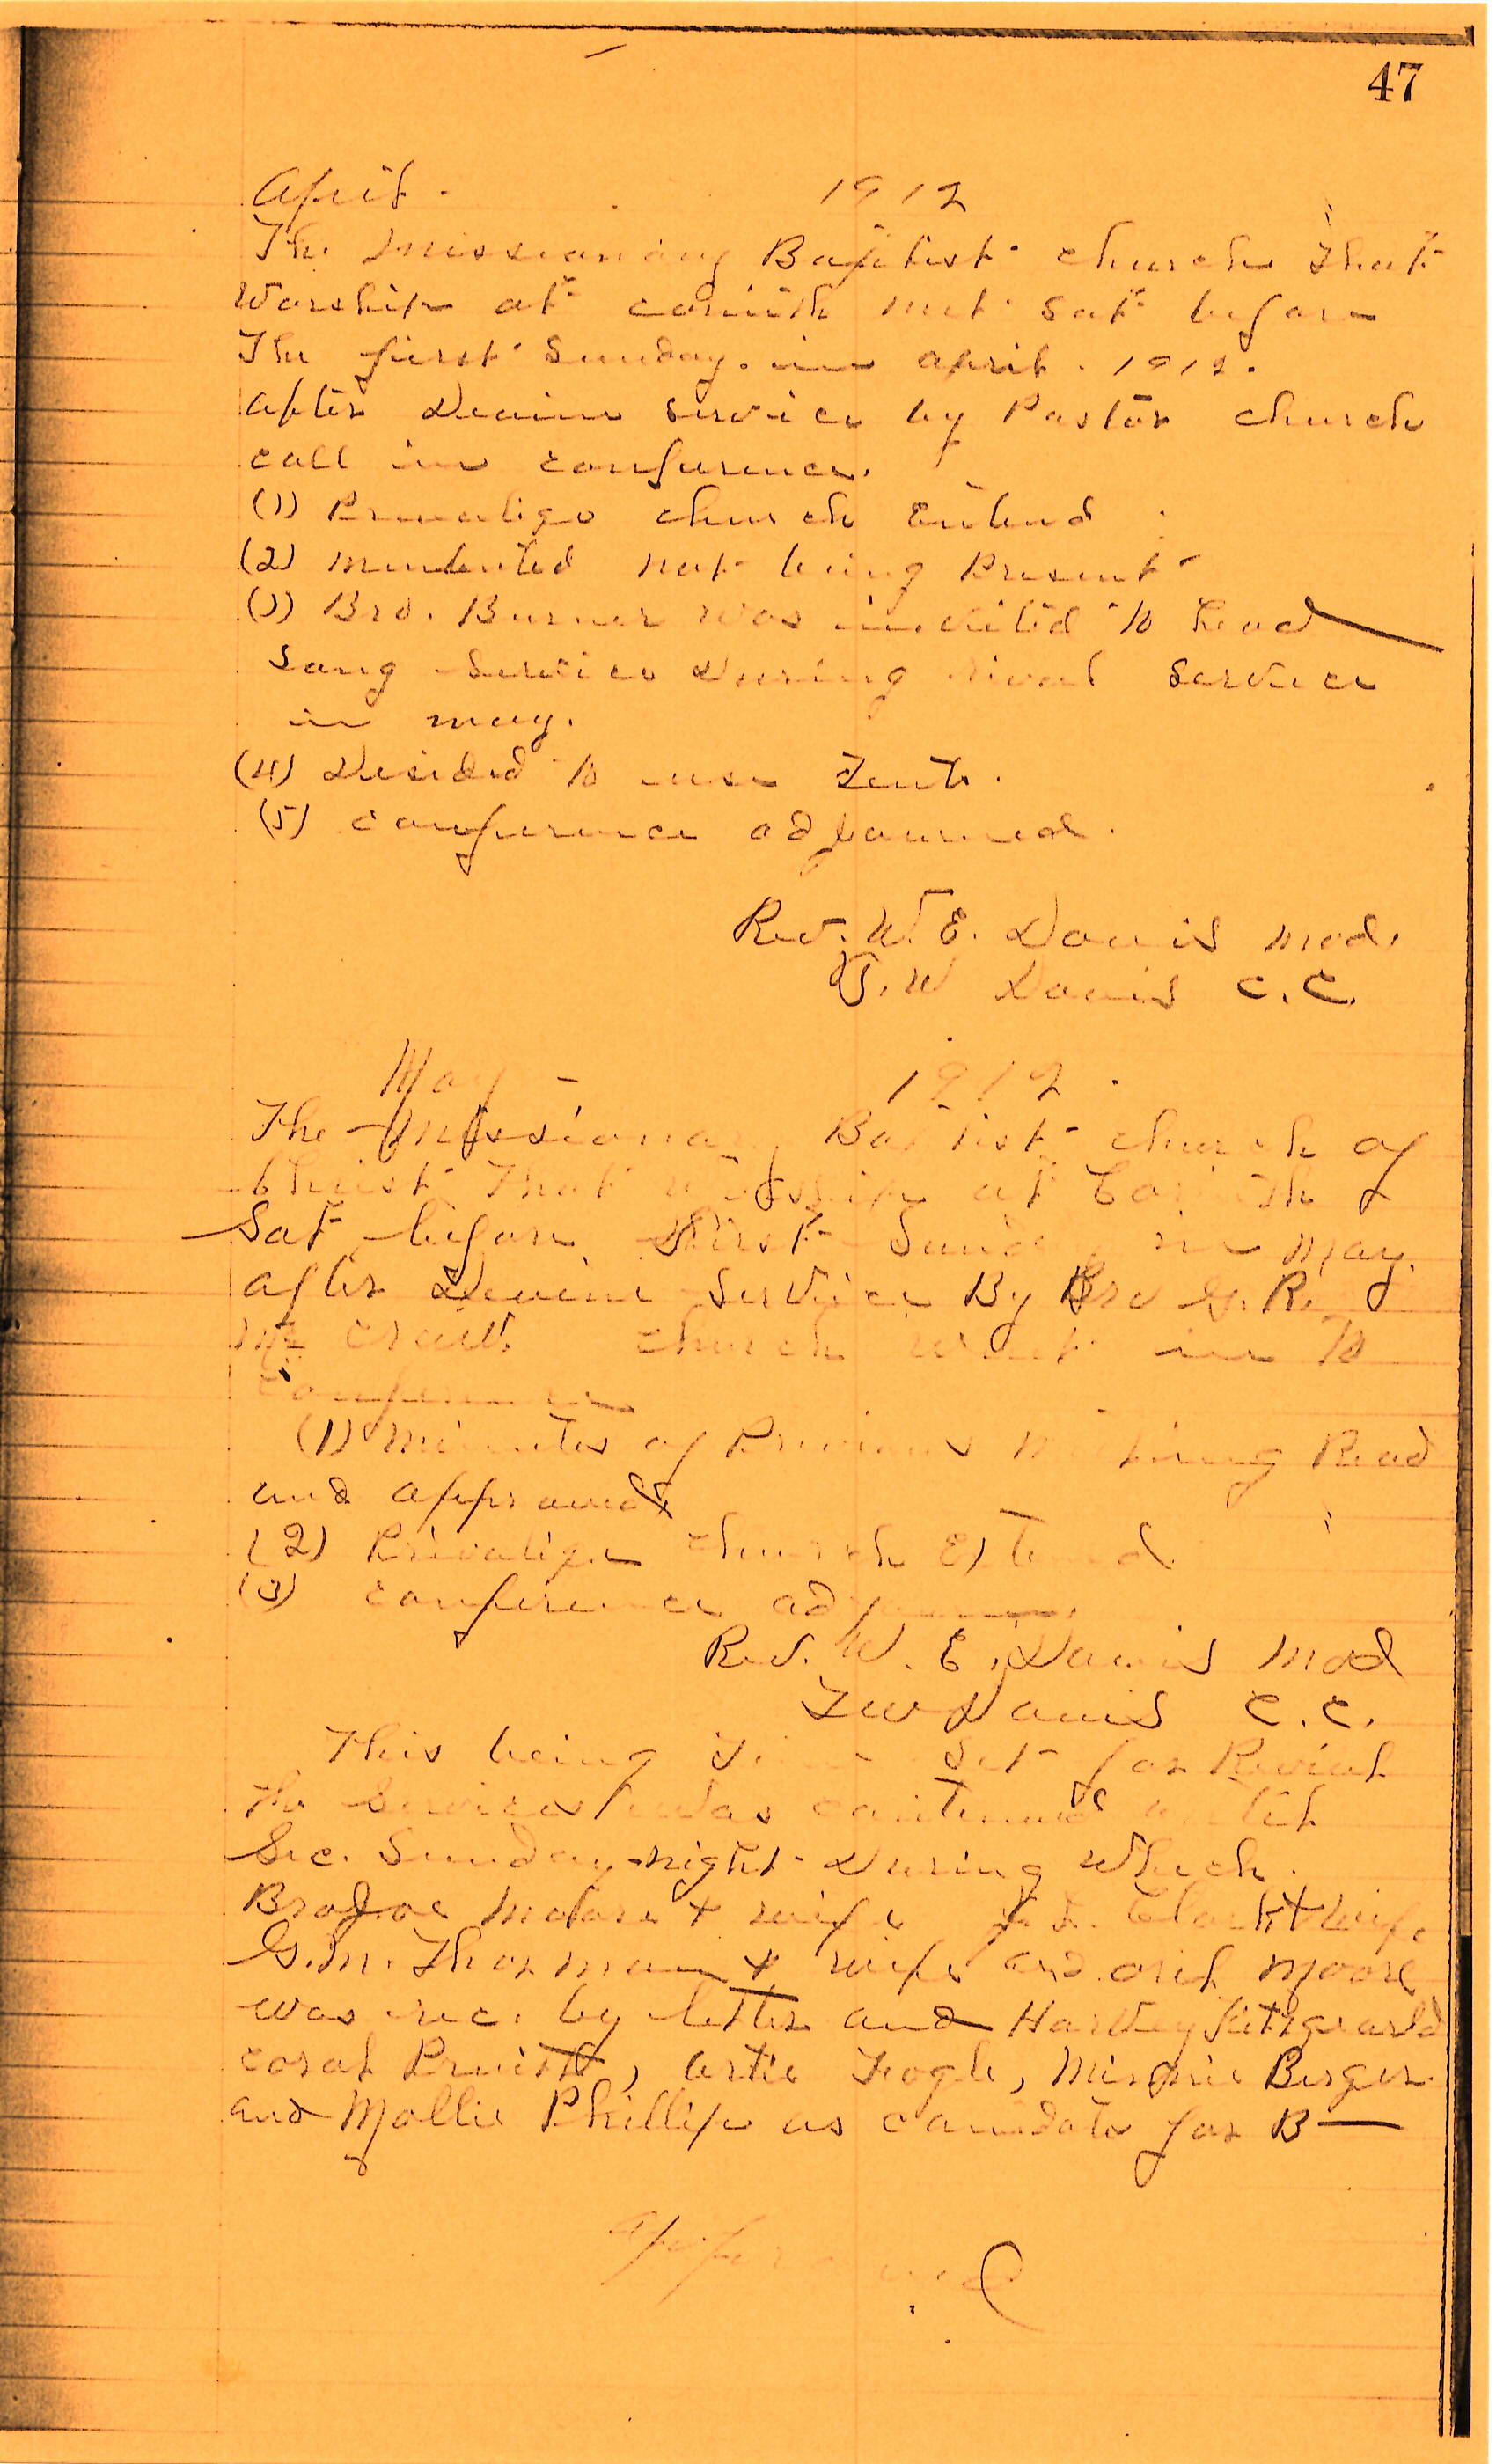 47
April. 1912
The Missionary Baptist church that
Worship at corinth met Sat before
The first Sunday. in april. 1912.
after Devine service by Pastor church
call in conference.
(1) church Extend
(2) not being Present
(3) Bro. Burner was invited to lead
Song Service During rival Service
in may.
(4) Desided to use Tent.
(5) conference adjourned.
Rev. W. E. Davis mod.
T. W Davis C. C.
May - 1912.
The Missionary Baptist church of
Christ That worship at Corinth
Sat before First Sunday in May.
after Devine Service By Bro G. R.
church went in to
conference
(1) Minutes of Previous Meeting Read
and approved
(2) church Extend
(3) conference adjourn.
Rev. W. E. Davis Mod
T W Davis C. C.
This being Time Set for Revival
The Services was until
Sec. Sunday night During Which
Bro Joe Moore + wife Clark + wife
G. M. Thorman + wife and Moore
was rec. by letter and Harvey
Pruitt, Fogle, Minnie Berger
and Mollie Phillips as canidate for B—
Approved